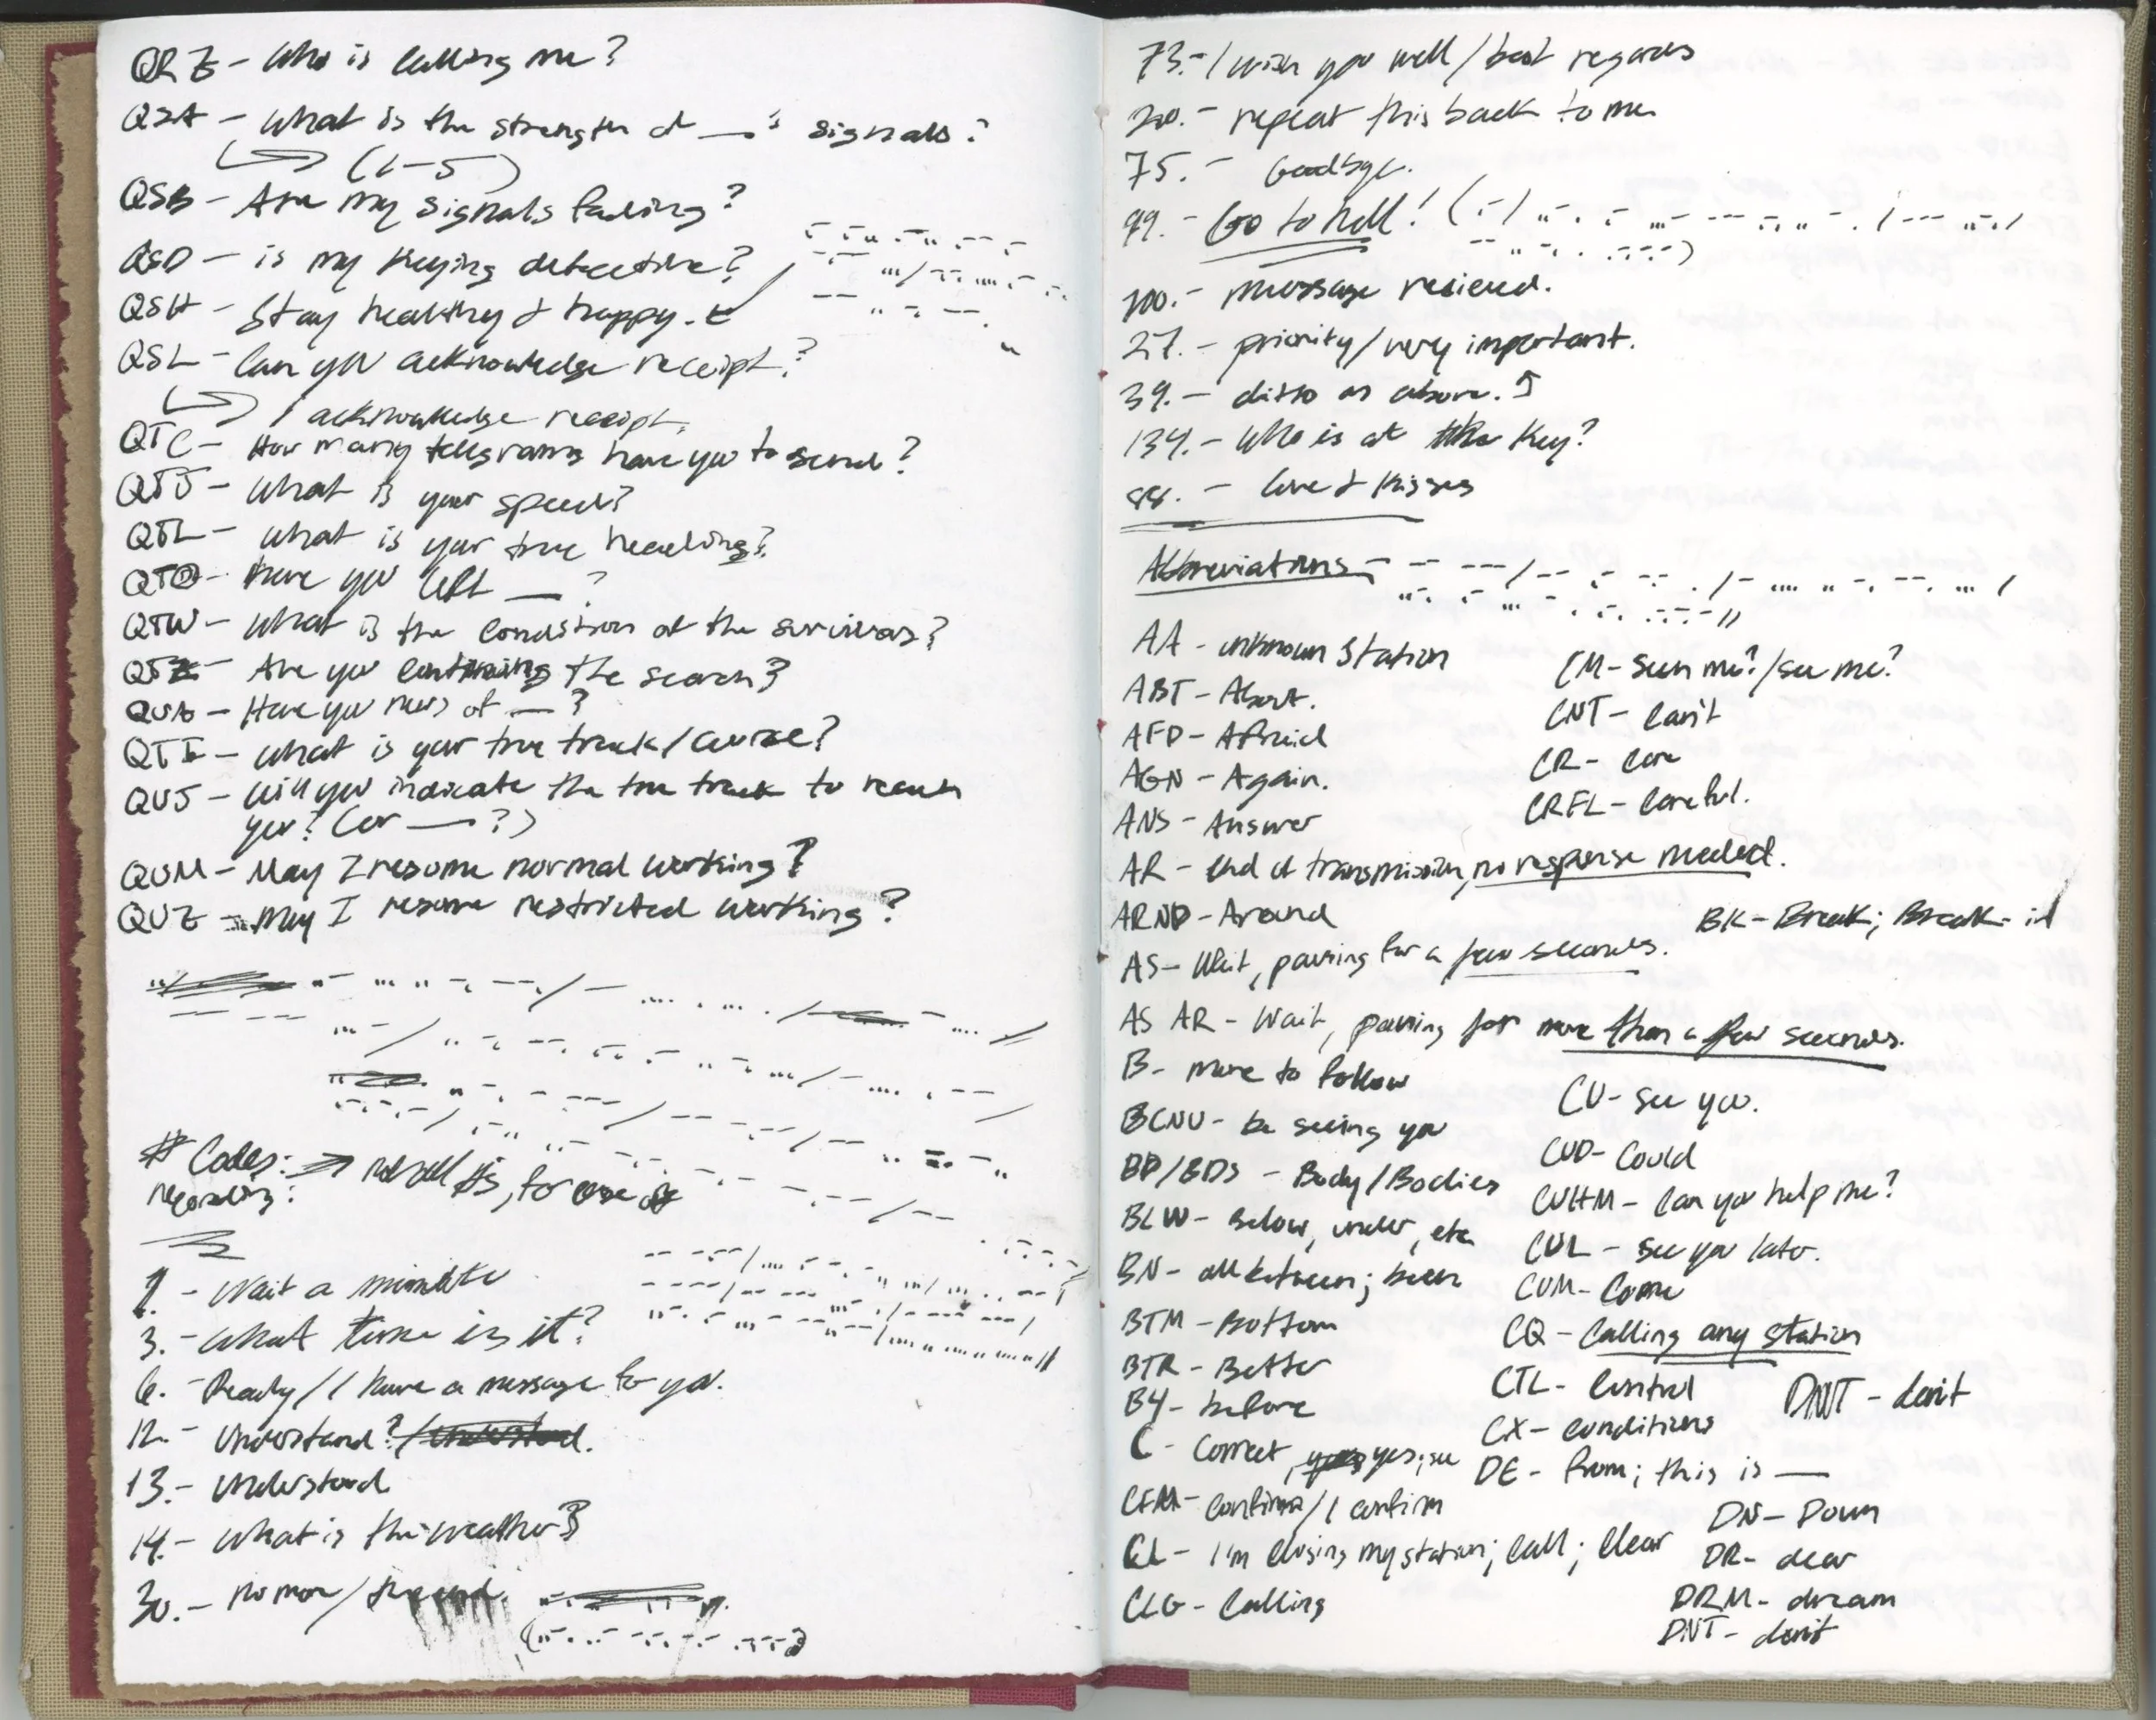 QRZ - Who is calling me?
QSA - What is the strength of __'s signals?
↳ (1-5)
QSB - Are my signals fading?
QSD - is my keying defective?
QSH - Stay healthy & happy.
QSL - Can you acknowledge receipt?
↳ I acknowledge receipt.
QTC - How many telegrams have you to send?
QTJ - What is your speed?
QTL - What is your true heading?
QTO - Have you left __?
QTW - What is the condition of the survivors?
QTZ - Are you continuing the search?
QUA - Have you news of __?
QTI - What is your true track/course?
QUJ - Will you indicate the true track to reach
you? (or __?)
QUM - May I resume normal working?
QUZ - May I resume restricted working?
# Codes: →
regarding:
1. - Wait a minute
3. - What time is it?
6. - Ready/I have a message for you.
12. - Understand?
13. - Understood
14. - What is the weather?
30. - no more/the end.
73. - I wish you well/best regards
20. - repeat this back to me
75. - Goodbye.
99. - Go to hell!
100. - message recieved.
27. - priority/very important.
39. - ditto as above.
134. - Who is at the key?
88. - love & kisses
Abbreviations -
AA - unknown station
ABT - About.
AFD - Afraid
AGN - Again.
ANS - Answer
AR - End of transmission, no response needed.
ARND - Around
AS - Wait, pausing for a few seconds.
AS AR - Wait, pausing for more than a few seconds.
B - more to follow
BCNU - be seeing you
BD/BDS - Body/Bodies
BLW - Below, under, etc
BN - all between; been
BTM - Bottom
BTR - Better
B4 - before
C - Correct, yes; see
CFM - confirm/I confirm
CL - I'm closing my station; call; clear
CLG - Calling
CM - seen me?/see me?
CNT - can't
CR - care
CRFL - careful.
BK - Break; Break-in
CU - see you.
CUD - Could
CUHM - Can you help me?
CUL - see you later.
CUM - Come
CQ - Calling any station
CTL - Control
CX - conditions
DE - from; this is __
DNT - don't
DN - Down
DR - dear
DRM - dream
DNT - don't